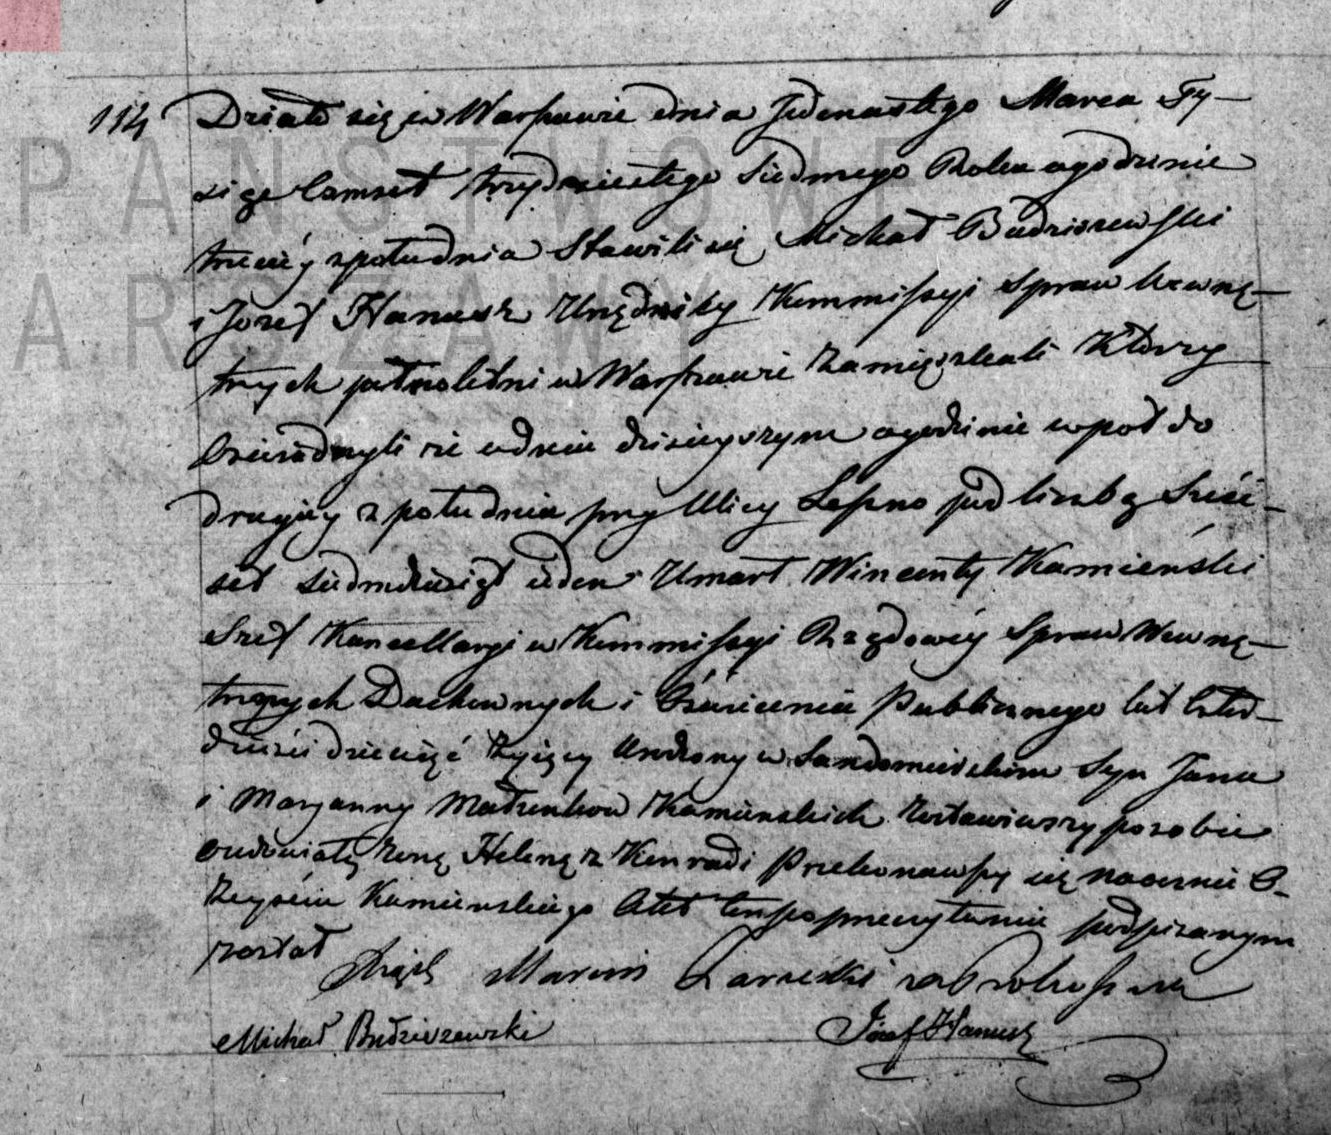 PAŃSTWOWE
ARSZAWY
114 Działo się w Warszawie dnia Jedenastego Marca Ty-
siąc Osmset trzydziestego Siedmego Roku o godzinie
trzeciéy z południa Stawili się Michał Budziszewski
i Józef Hanusz Urzędnicy Kommissyi Spraw Wewnę-
trzych pełnoletni w Warszawie Zamięszkali Którzy
Oświadczyli iż w dniu dzisieyszym o godzinie w poł do
drugiey z południa przy Ulicy Leszno pod liczbą Sześć-
set siedmdziesiąt ieden Umarł Wincenty Kamieński
Szef Kancellaryi w Kommissyi Rządowéy Spraw Wewnę-
trznych Duchownych i Oświecenia Publicznego lat Czter-
dzieści dziewięć żyiący Urodzony w Sandomierskim Syn Jana
i Maryanny Małżonków Kamieńskich Zostawiwszy po sobie
owdowiałą żonę Helenę z Przekonawszy się naocznie O
Zeyściu Kamieńskiego Akt ten po przeczytaniu podpisanym
został Xiądz Marcin
Michał Budziszewski Józef Hanusz